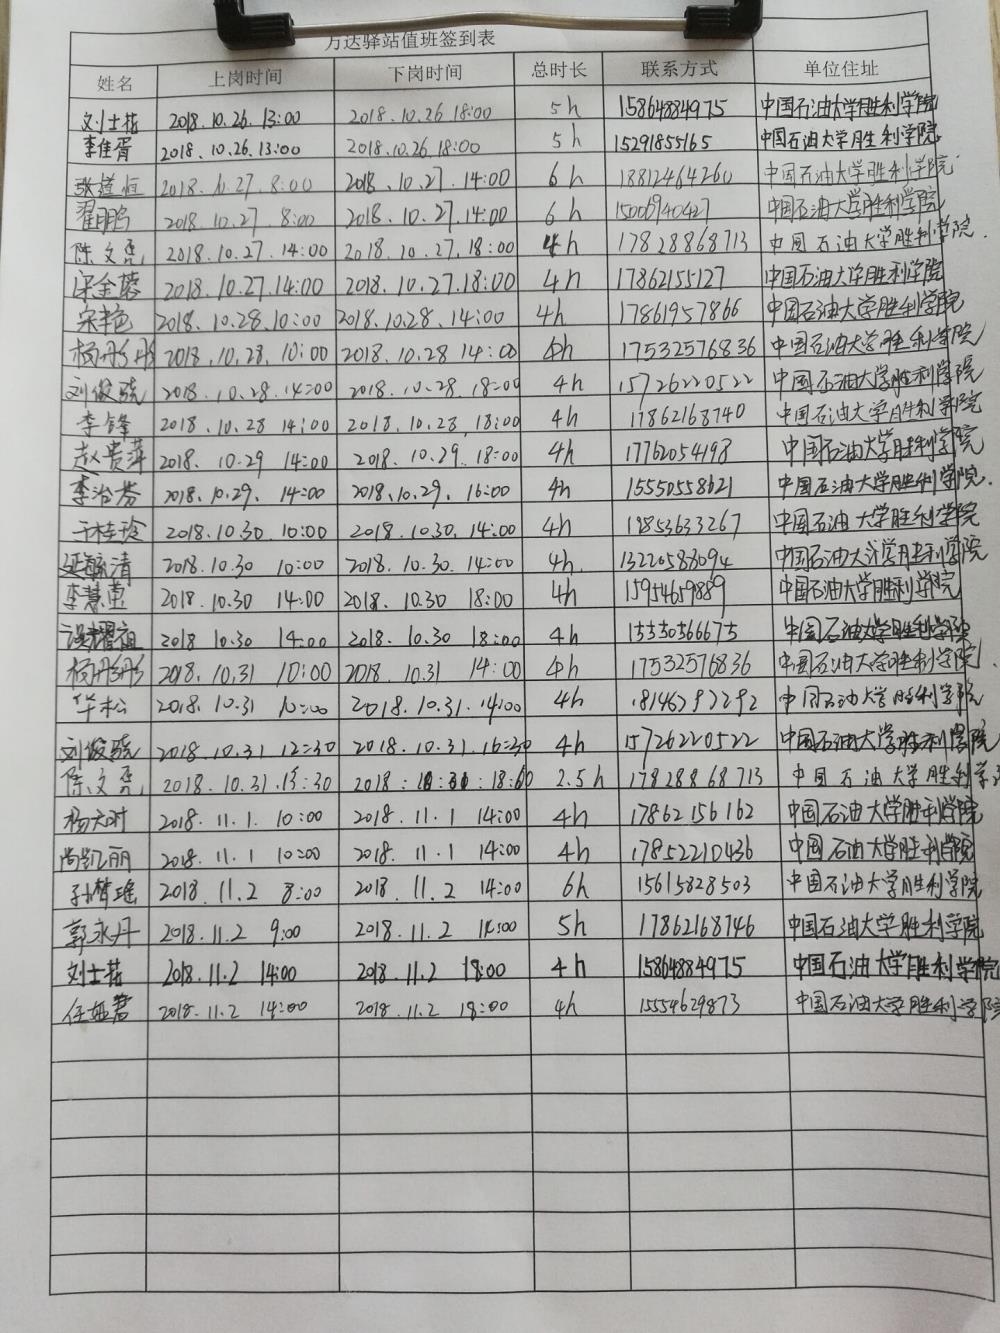 万达驿站值班签到表
姓名 上岗时间 下岗时间 总时长 联系方式 单位住址
刘士花 2018.10.26.13:00 2018.10.26 18:00 5h 15864884975 中国石油大学胜利学院
李佳霄 2018.10.26.13:00 2018.10.26.18:00 5h 15291855165 中国石油大学胜利学院
张道恒 2018.10.27.8:00 2018.10.27.14:00 6h 18812464260 中国石油大学胜利学院.
翟鹏 2018.10.27.8:00 2018.10.27.14:00 6h 15006940427 中国石油大学胜利学院
陈文亮 2018.10.27.14:00 2018.10.27.18:00 4h 17828868713 中国石油大学胜利学院.
宋金蓉 2018.10.27.14:00 2018.10.27.18:00 4h 17862155127 中国石油大学胜利学院
宋艳 2018.10.28.10:00 2018.10.28.14:00 4h 17861957866 中国石油大学胜利学院
杨彤彤 2018.10.28.10:00 2018.10.28 14:00 4h 17532576836 中国石油大学胜利学院
刘俊骁 2018.10.28 14:00 2018.10.28 18:00 4h 15726220522 中国石油大学胜利学院
李锋 2018.10.28 14:00 2018.10.28.18:00 4h 17862168740 中国石油大学胜利学院
赵贵萍 2018.10.29 14:00 2018.10.29.18:00 4h 17762054198 中国石油大学胜利学院
李治芬 2018.10.29. 14:00 2018.10.29.16:00 4h 15550558621 中国石油大学胜利学院.
于桂玲 2018.10.30 10:00 2018.10.30.14:00 4h 18853633267 中国石油大学胜利学院
延毓清 2018.10.30 10:00 2018.10.30.14:00 4h 13220583094 中国石油大学胜利学院
李慧 2018.10.30 14:00 2018.10.30 18:00 4h 15954659889 中国石油大学胜利学院
耀祖 2018.10.30 14:00 2018.10.30 18:00 4h 15550566675 中国石油大学胜利学院
杨彤彤 2018.10.31 10:00 2018.10.31 14:00 4h 17532576836 中国石油大学胜利学院.
华松 2018.10.31 10:00 2018.10.31.14:00 4h 18146292292 中国石油大学胜利学院
刘俊骁 2018.10.31 12:30 2018.10.31.16:30 4h 15726220522 中国石油大学胜利学院
陈文亮 2018.10.31.15:30 2018:10:31:18:00 2.5h 17828868713 中国石油大学胜利学
杨天 2018.11.1.10:00 2018.11.1 14:00 4h 17862156162 中国石油大学胜利学院
尚凯丽 2018.11.1 10:00 2018.11.1 14:00 4h 17852210436 中国石油大学胜利学院
孙梦瑶 2018.11.2 8:00 2018.11.2 14:00 6h 15615828503 中国石油大学胜利学院
郭永丹 2018.11.2 9:00 2018.11.2 14:00 5h 17862168746 中国石油大学胜利学院
刘士花 2018.11.2 14:00 2018.11.2 18:00 4h 15864884975 中国石油大学胜利学院
任亚君 2018.11.2 14:00 2018.11.2 18:00 4h 15554629873 中国石油大学胜利学院